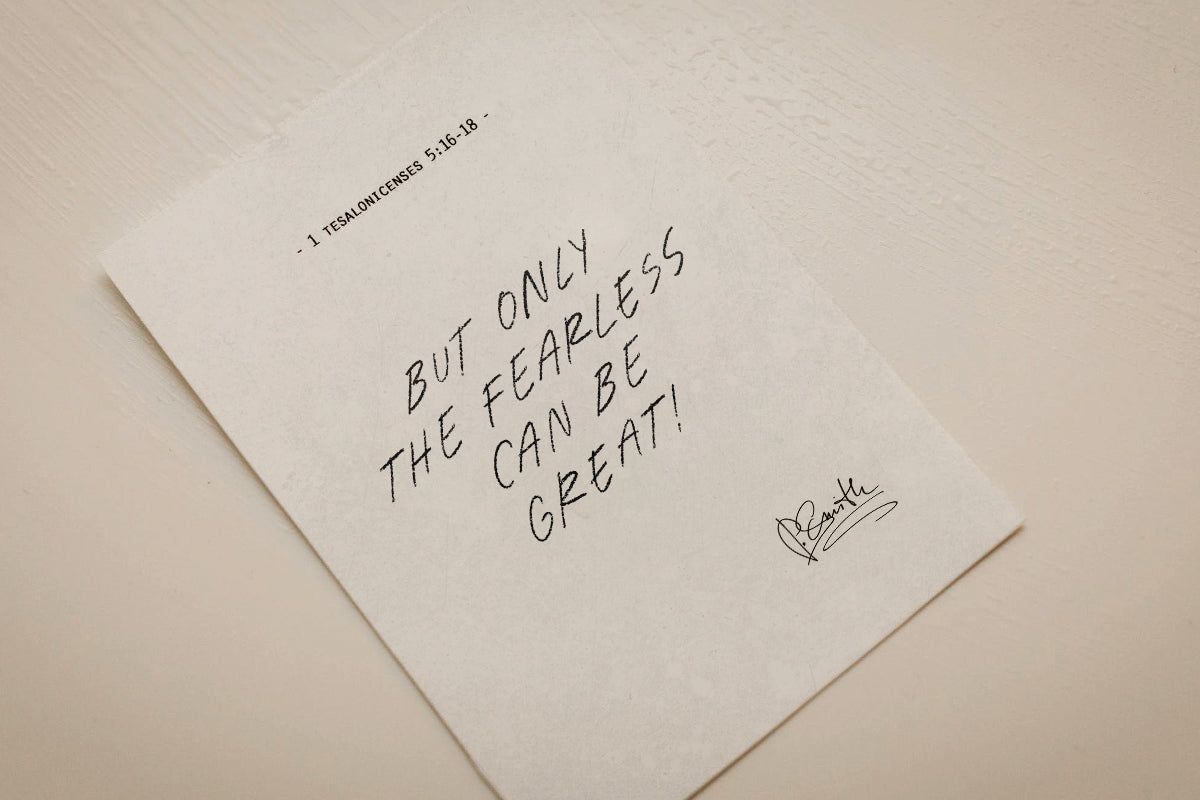 - 1 TESALONICENSES 5:16-18 -
BUT ONLY
THE FEARLESS
CAN BE
GREAT!
P. Smith